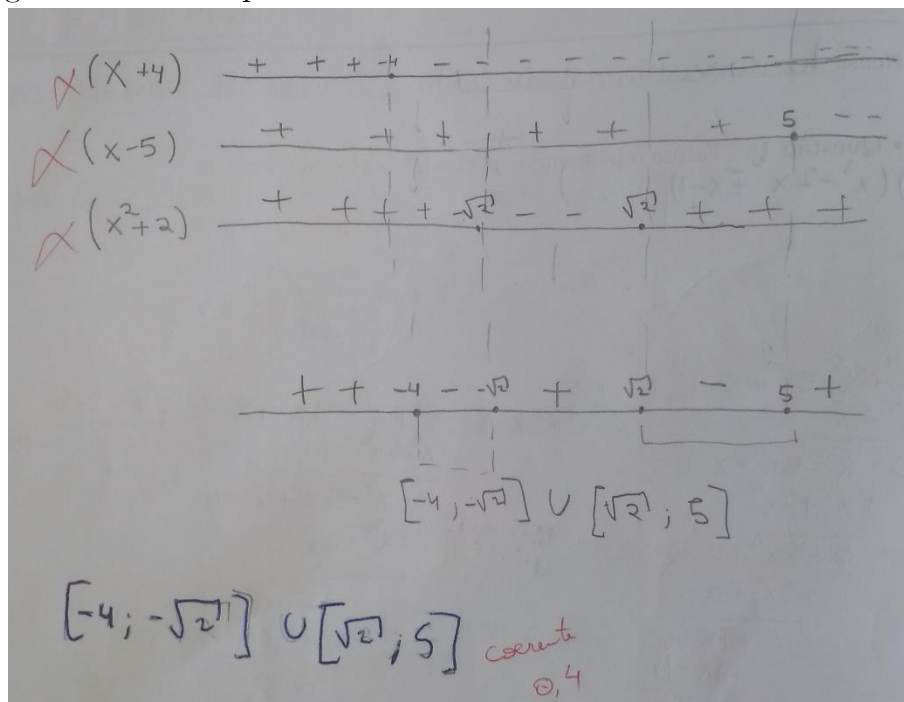 (x+4) + + + -4 - - - - - - - - - - - -
(x-5) + + + + + + 5 - -
(x²+2) + + + + -√2 - - √2 + + +
+ + -4 - -√2 + √2 - 5 +
[-4; -√2] ∪ [√2; 5]
[-4; -√2] ∪ [√2; 5] coerente
0,4